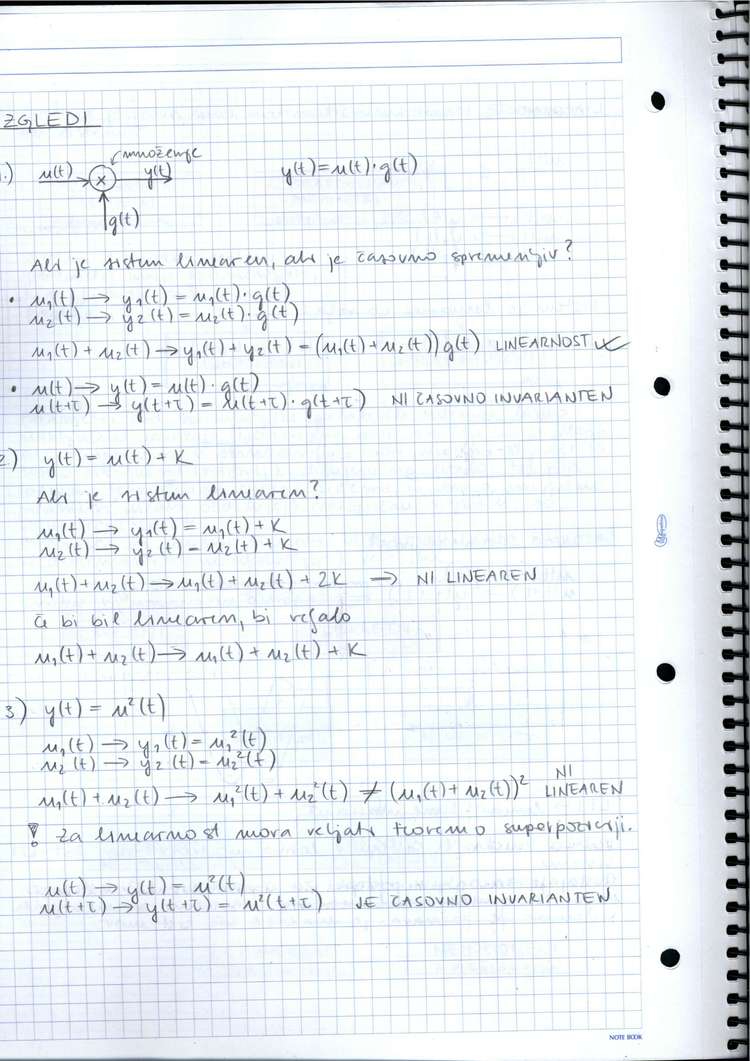 ZGLEDI
množenje
1.) u(t) × y(t) y(t) = u(t)·g(t)
g(t)
Ali je sistem linearen, ali je časovno spremenljiv?
• u₁(t) → y₁(t) = u₁(t)·g(t)
u₂(t) → y₂(t) = u₂(t)·g(t)
u₁(t) + u₂(t) → y₁(t) + y₂(t) = (u₁(t) + u₂(t)) g(t) LINEARNOST ✓
• u(t) → y(t) = u(t)·g(t)
u(t+τ) → y(t+τ) = u(t+τ)·g(t+τ) NI ČASOVNO INVARIANTEN
2) y(t) = u(t) + K
Ali je sistem linearen?
u₁(t) → y₁(t) = u₁(t) + K
u₂(t) → y₂(t) = u₂(t) + K
u₁(t) + u₂(t) → u₁(t) + u₂(t) + 2K → NI LINEAREN
Če bi bil linearen, bi veljalo
u₁(t) + u₂(t) → u₁(t) + u₂(t) + K
3) y(t) = u²(t)
u₁(t) → y₁(t) = u₁²(t)
u₂(t) → y₂(t) = u₂²(t)
u₁(t) + u₂(t) → u₁²(t) + u₂²(t) ≠ (u₁(t) + u₂(t))² NI LINEAREN
! Za linearnost mora veljati teorem o superpoziciji.
u(t) → y(t) = u²(t)
u(t+τ) → y(t+τ) = u²(t+τ) JE ČASOVNO INVARIANTEN
NOTE BOOK